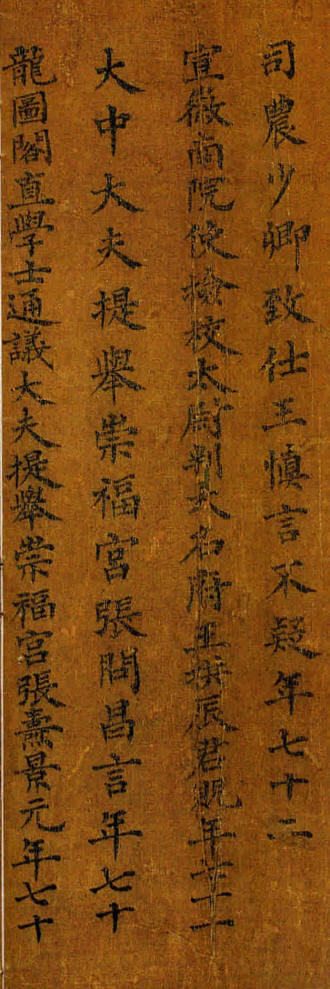 司農少卿致仕王慎言不疑年七十二
宣徽南院使檢校太尉判大名府王拱辰君貺年七十一
大中大夫提舉崇福宮張問昌言年七十
龍圖閣直學士通議大夫提舉崇福宮張燾景元年七十